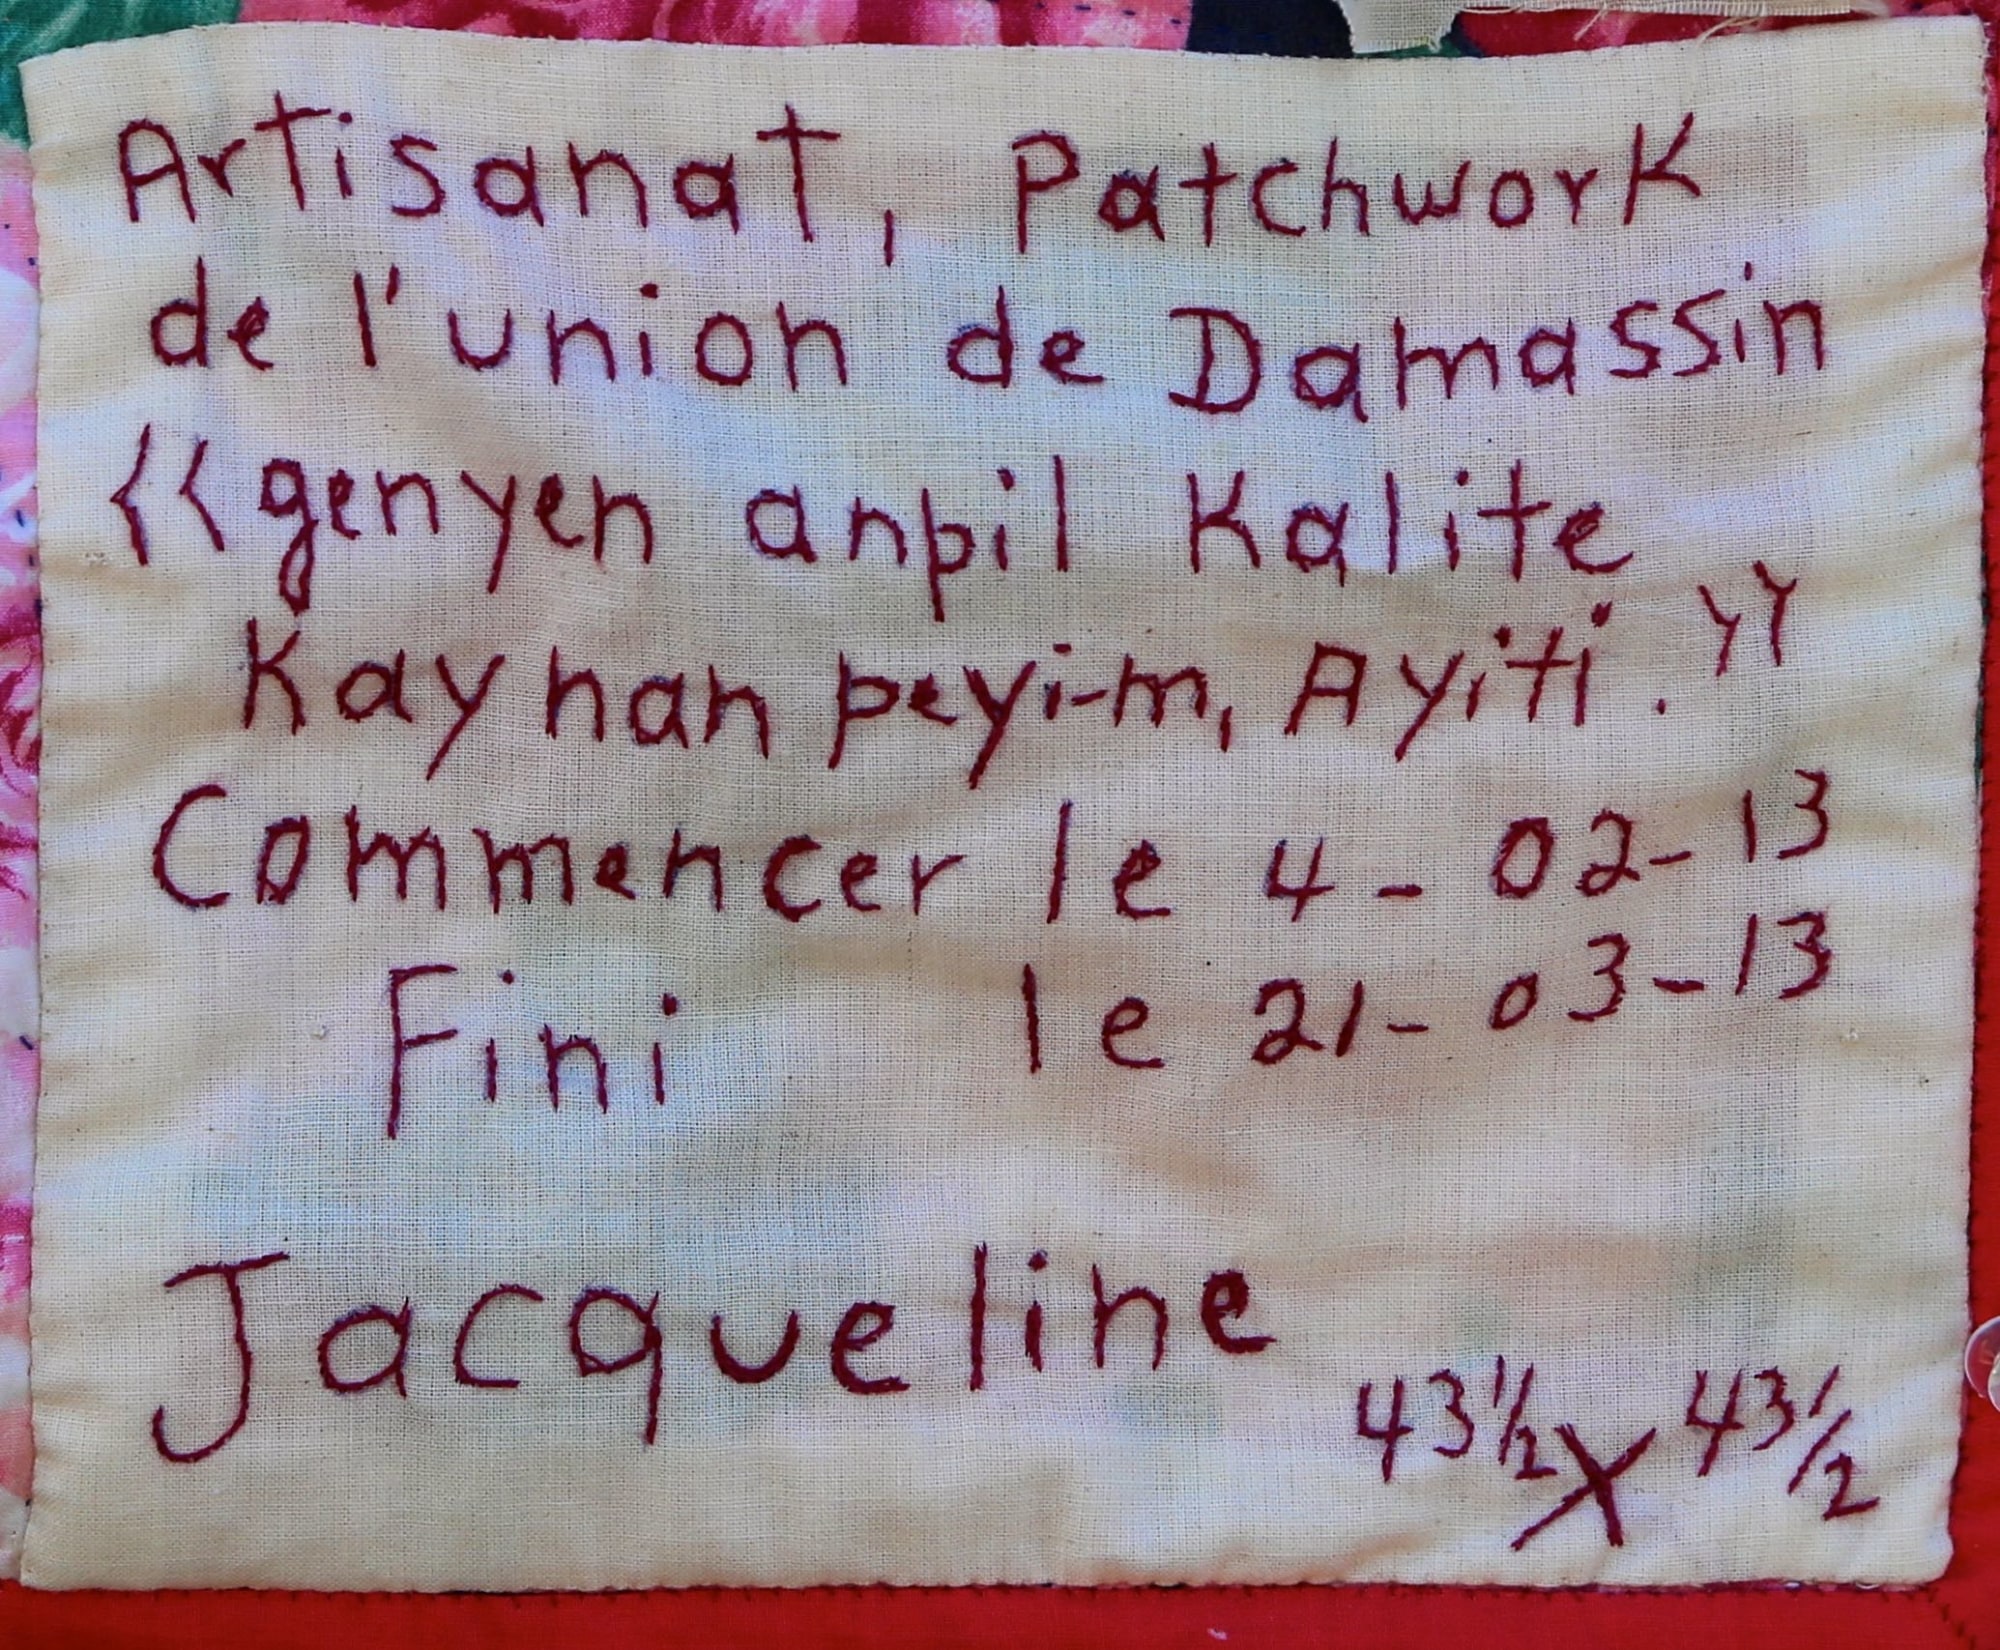 Artisanat, Patchwork
de l'union de Damassin
<<genyen anpil Kalite
Kay nan peyi-m, Ayiti.>>
Commencer le 4-02-13
Fini le 21-03-13
Jacqueline
43 1/2 X 43 1/2